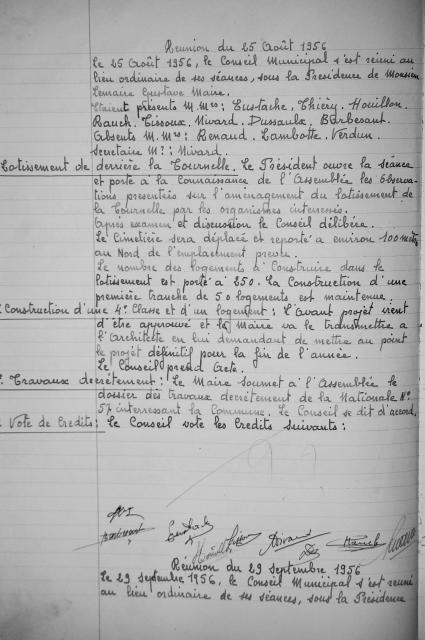 Reunion du 25 Août 1956
Le 25 Août 1956, le Conseil Municipal s'est réuni au
lieu ordinaire de ses séances, sous la Presidence de Monsieur
Lemaire Gustave Maire.
Etaient présents M.Mrs: Eustache, Thiéry, Houillon.
Rauch. Tissoux. Nivard. Dussaulx. Barbesant.
Absents M.Mrs: Renaud. Lambotte. Verdun.
Secretaire Mr: Nivard.
Lotissement de derrière la Tournelle. Le Président ouvre la séance
et porte à la connaissance de l'Assemblée les Observa
tions presentées sur l'aménagement du lotissement de
la Tournelle par les organismes interessés.
Après examen et discussion le Conseil délibère.
Le Cimetière sera déplacé et reporté à environ 100 mètres
au Nord de l'emplacement prevu.
Le nombre des logements à Construire dans le
lotissement est porté à 250. La Construction d'une
première tranche de 50 logements est maintenue.
Construction d'une 4e Classe et d'un logement: L'Avant projet vient
d'être approuvé et le Maire va le transmettre à
l'Architecte en lui demandant de mettre au point
le projet définitif pour la fin de l'année.
Le Conseil prend Acte.
Travaux decrêtement: Le Maire soumet à l'Assemblée le
dossier des travaux decrêtement de la Nationale No
57 interressant la Commune. Le Conseil se dit d'accord.
Vote de Credits: Le Conseil vote les Credits suivants:
Reunion du 29 Septembre 1956
Le 29 Septembre 1956, le Conseil Municipal s'est reuni
au lieu ordinaire de ses séances, sous la Présidence